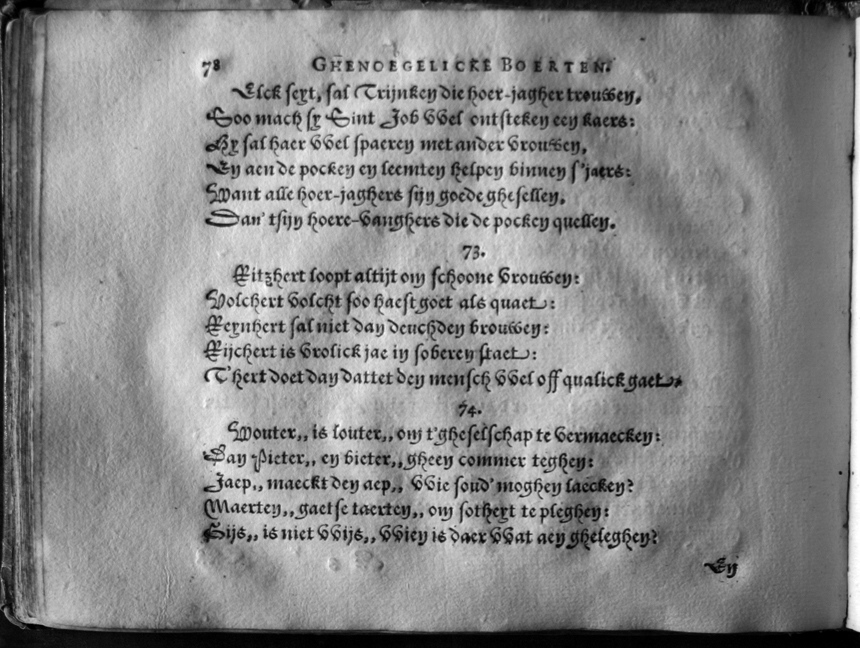 78 GHENOEGELICKE BOERTEN.
Elck seyt, sal Trijnken die hoer-jagher trouwen,
Soo mach sy Sint Job VVel ontsteken een kaers:
Hy sal haer VVel spaeren met ander vrouwen,
En aen de pocken en leemten helpen binnen s'jaers:
Want alle hoer-jaghers sijn goede ghesellen,
Dan' tsijn hoere-vanghers die de pocken quellen.
73.
Ritzhert loopt altijt om schoone vrouwen:
Volchert volcht soo haest goet als quaet:
Reynhert sal niet dan deuchden brouwen:
Rijchert is vrolick jae in soberen staet:
T'hert doet dan dattet den mensch VVel off qualick gaet.
74.
Wouter,, is louter,, om t'gheselschap te vermaecken:
Dan Pieter,, en bieter,, gheen commer teghen:
Jaep,, maeckt den aep,, VVie soud' moghen laecken?
Maerten,, gaet se taerten,, om sotheyt te pleghen:
Gijs,, is niet VVijs,, VVien is daer VVat aen gheleghen?
En